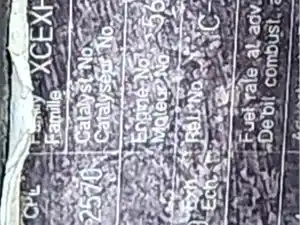 CPL
Family
Famille
XCEXH
2570
Catalyst No.
Catalyseur No.
Engine No.
Moteur No.
56
Ref. No.
Ech.
C
Fuel rate at adv.
Debit combust. a